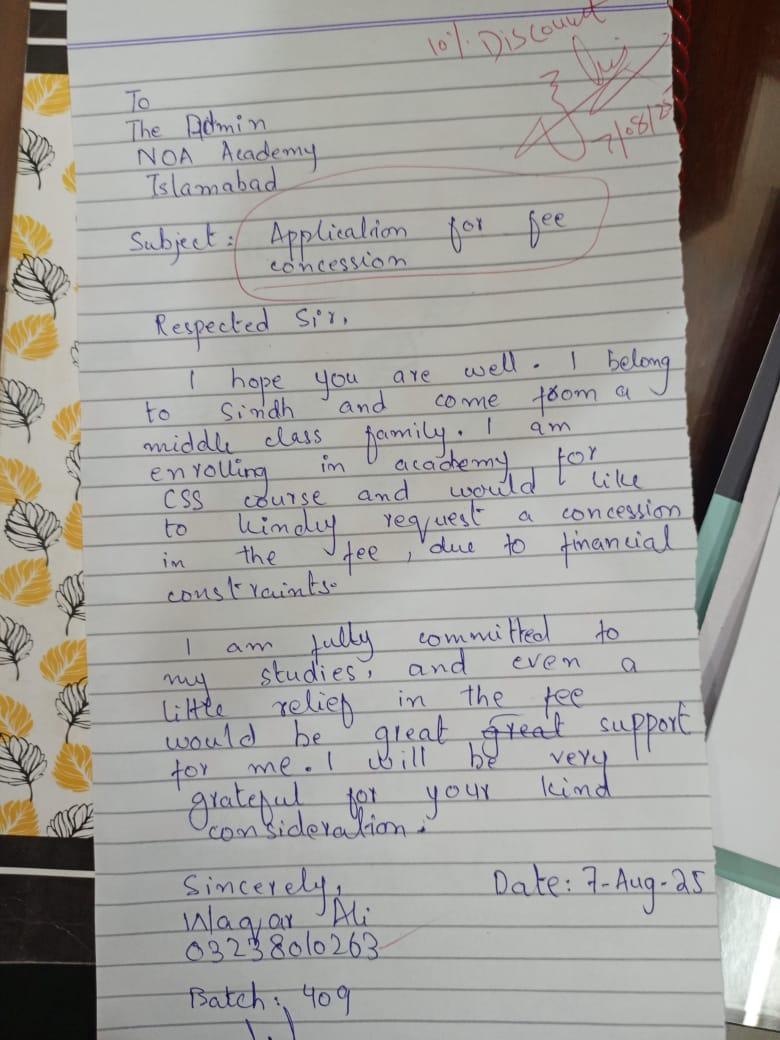 10% Discount
7/08/25
To
The Admin
NOA Academy
Islamabad
Subject: Application for fee
concession
Respected Sir,
I hope you are well. I belong
to Sindh and come from a
middle class family. I am
enrolling in academy for
CSS course and would like
to kindly request a concession
in the fee, due to financial
constraints.
I am fully committed to
my studies, and even a
little relief in the fee
would be great great support
for me. I will be very
grateful for your kind
consideration.
Sincerely, Date: 7-Aug-25
Waqar Ali
03238010263
Batch: 409